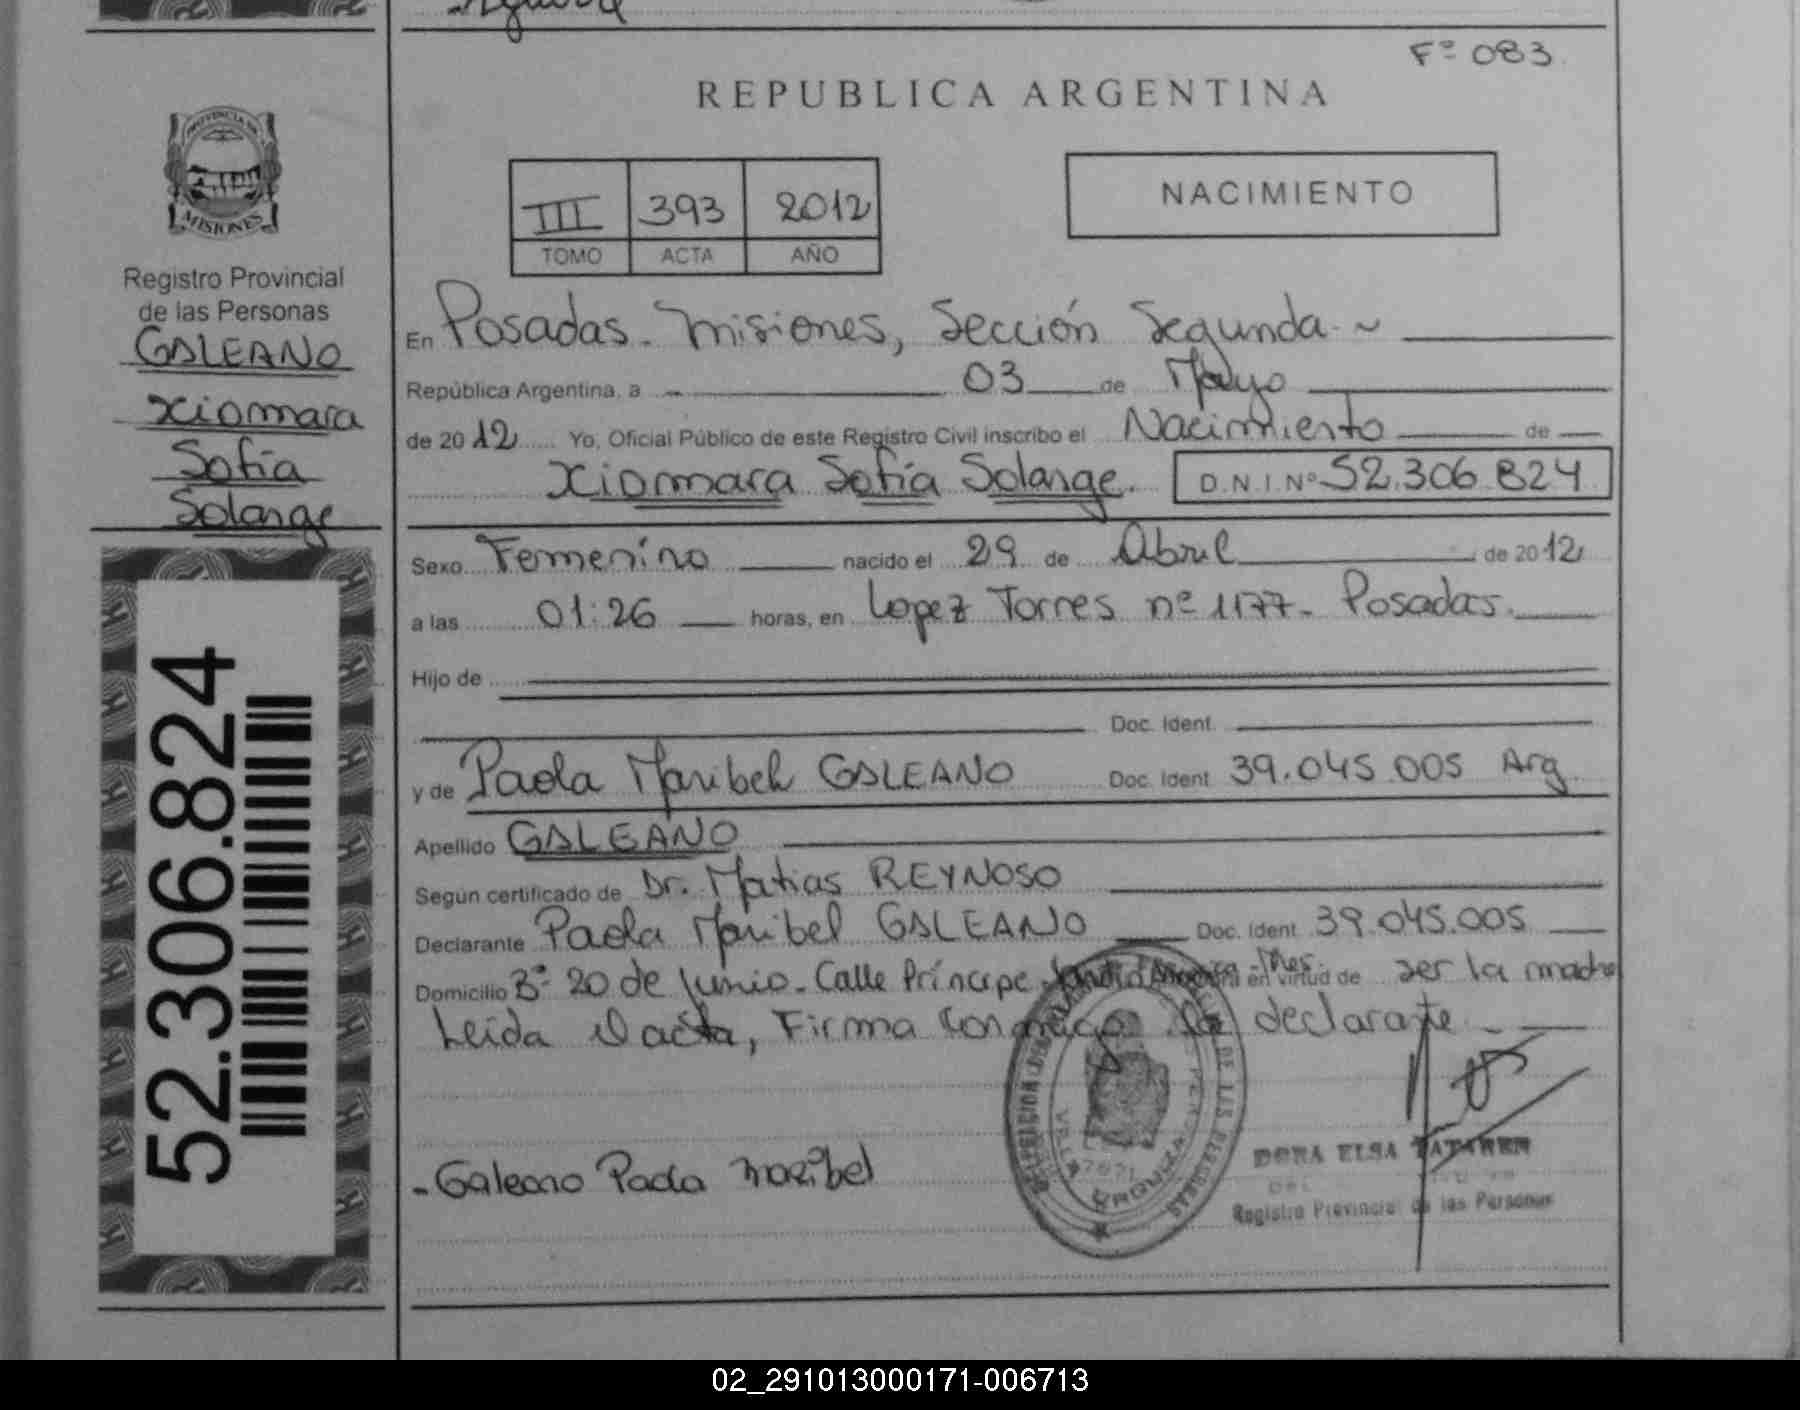 Fº 083
REPUBLICA ARGENTINA
PROVINCIA DE
MISIONES
Registro Provincial
de las Personas
GALEANO
Xiomara
Sofía
Solange
52.306.824
III 393 2012
TOMO ACTA AÑO
NACIMIENTO
En Posadas - Misiones, Sección Segunda
República Argentina, a 03 de Mayo
de 2012 Yo, Oficial Público de este Registro Civil inscribo el Nacimiento de
Xiomara Sofía Solange. D.N.I. Nº 52.306.824
Sexo Femenino nacido el 29 de Abril de 2012
a las 01:26 horas, en Lopez Torres nº 1177 - Posadas.
Hijo de
Doc. Ident.
y de Paola Maribel GALEANO Doc. Ident 39.045.005 Arg.
Apellido GALEANO
Según certificado de Dr. Matias REYNOSO
Declarante Paola Maribel GALEANO Doc. Ident 39.045.005
Domicilio Bº 20 de Junio - Calle Príncipe en virtud de ser la madre
Leída el acta, Firma conmigo la declarante
- Galeano Paola Maribel
DORA ELSA
Registro Provincial de las Personas
02_291013000171-006713